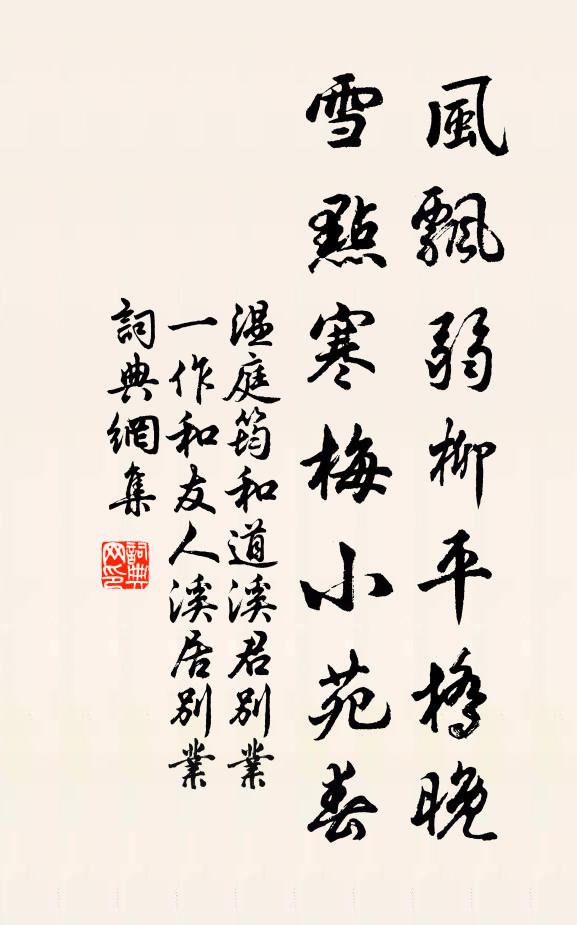 風飄弱柳平橋晚
雪點寒梅小苑春
溫庭筠和道溪君別業
一作和友人溪居別業
詞典網集
詞典网印